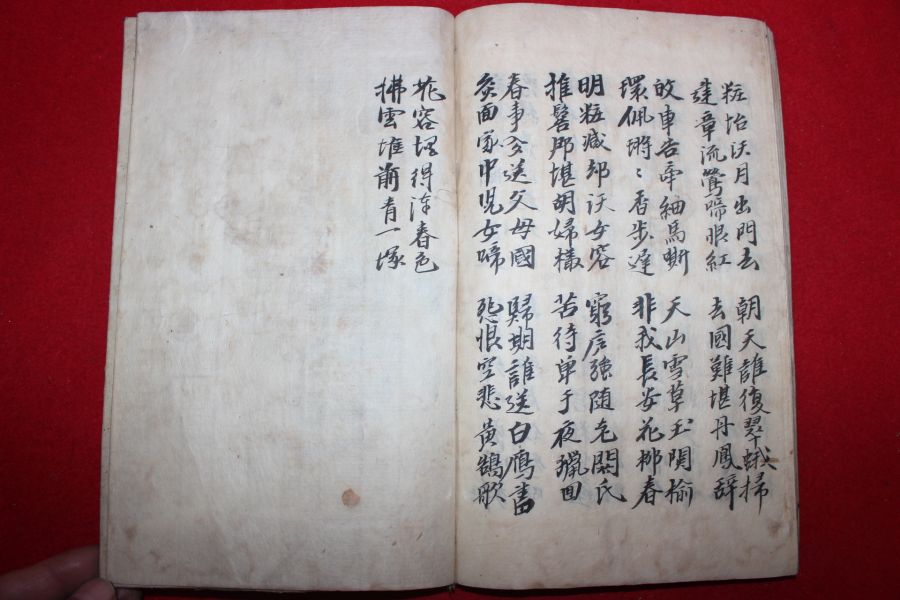 粧怡沃月出門去 朝天誰復翠蛾掃
建章流鶯啼恨紅 去國難堪丹鳳辭
故車若牽細馬嘶 天山雪草玉関榆
環佩將〻香步遲 非我長安花柳春
明粧减却沃女容 窮庐強随老閼氏
推髻那堪胡婦樣 苦待單于夜獵回
春事今送父母國 歸期誰送白鴈書
灸面家中児女啼 死恨空悲黃鵠歌
花容埋得漢春色
拂雲堆前青一塚